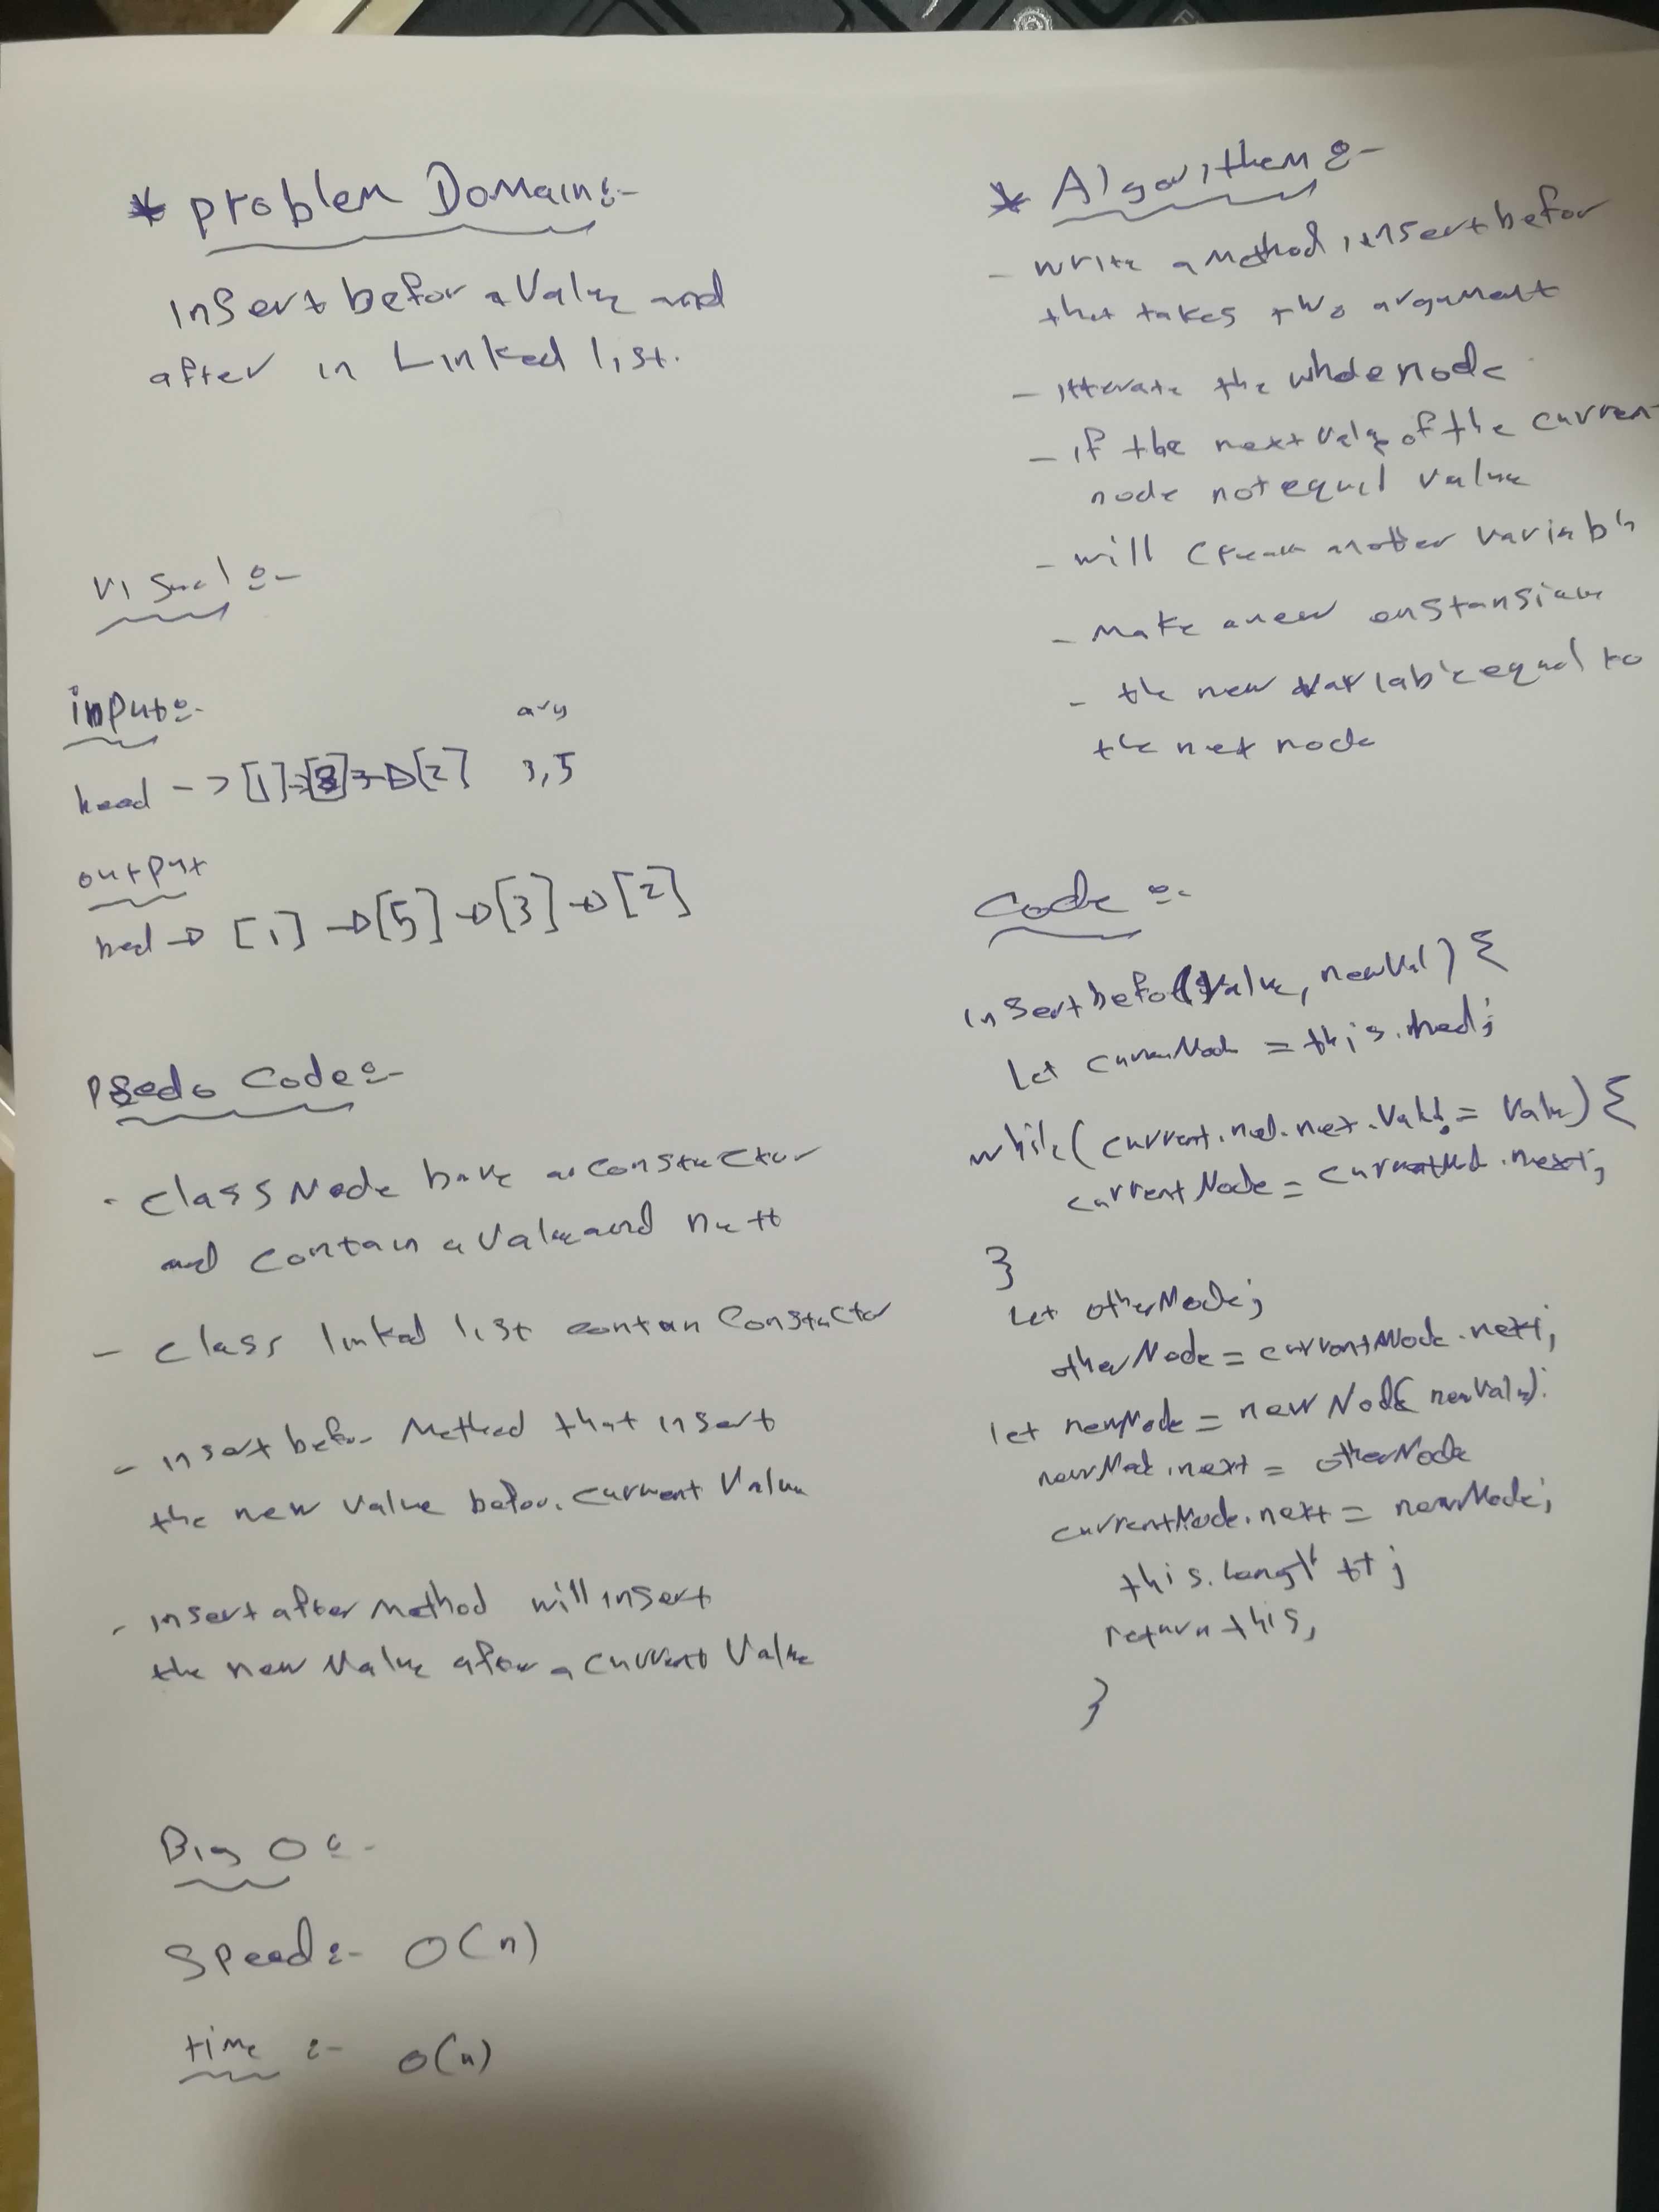 * problem Domain:-
Insert befor a Value and
after in Linked list.
Visual :-
input:-
arg
head -> [1] -> [3] -> [2] 3,5
output
head -> [1] -> [5] -> [3] -> [2]
Psedo Code:-
- class Node have a constructor
and contain a Value and next
- class linked list contan Constuctor
- insert befor Method that insert
the new value befor current Value
- insert after Method will insert
the new Value after a current Value
Big O :-
Speed :- O(n)
time :- O(n)
* Algorithem :-
- write a Method insert befor
that takes two argument
- itterate the whole node
- if the next value of the curren
node not equal value
- will creat another variable
- Make a new
- the new variable equal to
the net node
Code :-
insertbefor(Value, newVal) {
Let currenNode = this.head;
while(current.nod.next.Val != Value) {
currentNode = currentNod.next;
}
Let otherNode;
otherNode = currentNode.next;
let newNode = new Node(newValue);
newNod.next = otherNode
currentNode.next = newNode;
this.lengt ++;
return this;
}